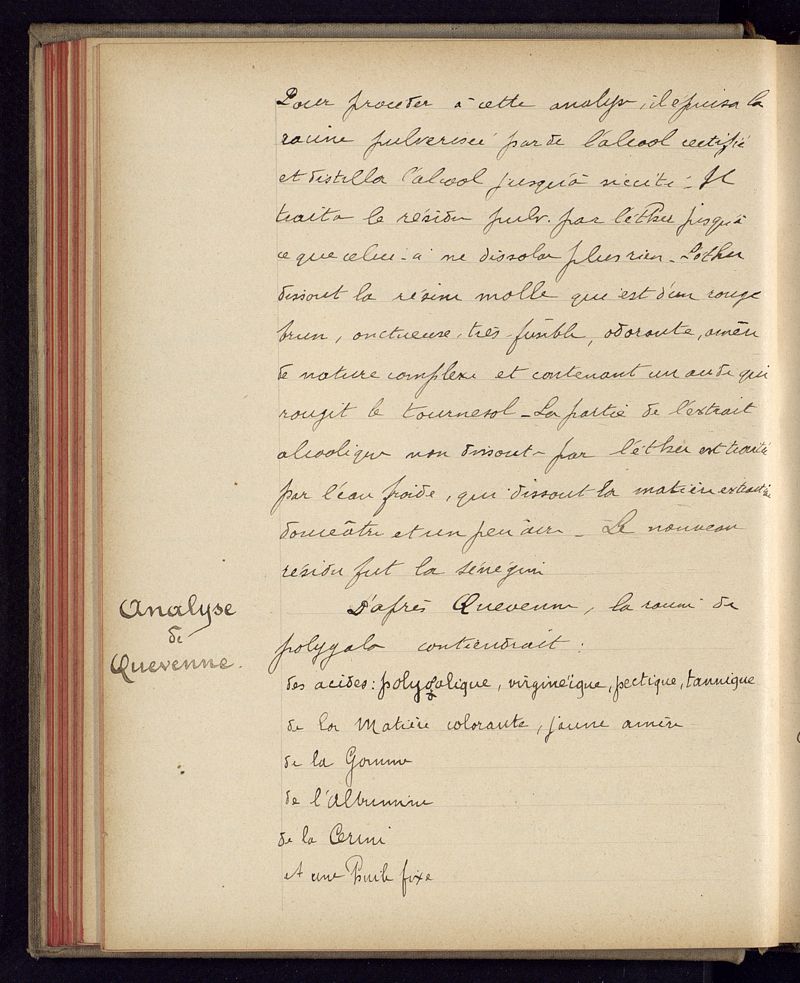 Pour procéder à cette analyse, il épuisa la
racine pulvérisée par de l'alcool rectifié
et distilla l'alcool jusqu'à siccité. Il
traita le résidu pulv. par l'éther jusqu'à
ce que celui-ci ne dissolve plus rien - L'éther
dissout la résine molle qui est d'un rouge
brun, onctueuse, très-fusible, odorante, amère
de nature complexe et contenant un acide qui
rougit le tournesol - La partie de l'extrait
alcoolique non dissoute par l'éther est traitée
par l'eau froide, qui dissout la matière extractive
douceâtre et un peu âcre - Le nouveau
résidu fut la sénéguine
Analyse
de
Quevenne.
D'après Quevenne, la racine de
polygala contiendrait :
des acides : polygalique, virginéique, pectique, tannique
de la Matière colorante, jaune amère
de la Gomme
de l'Albumine
de la Cérine
et une Huile fixe